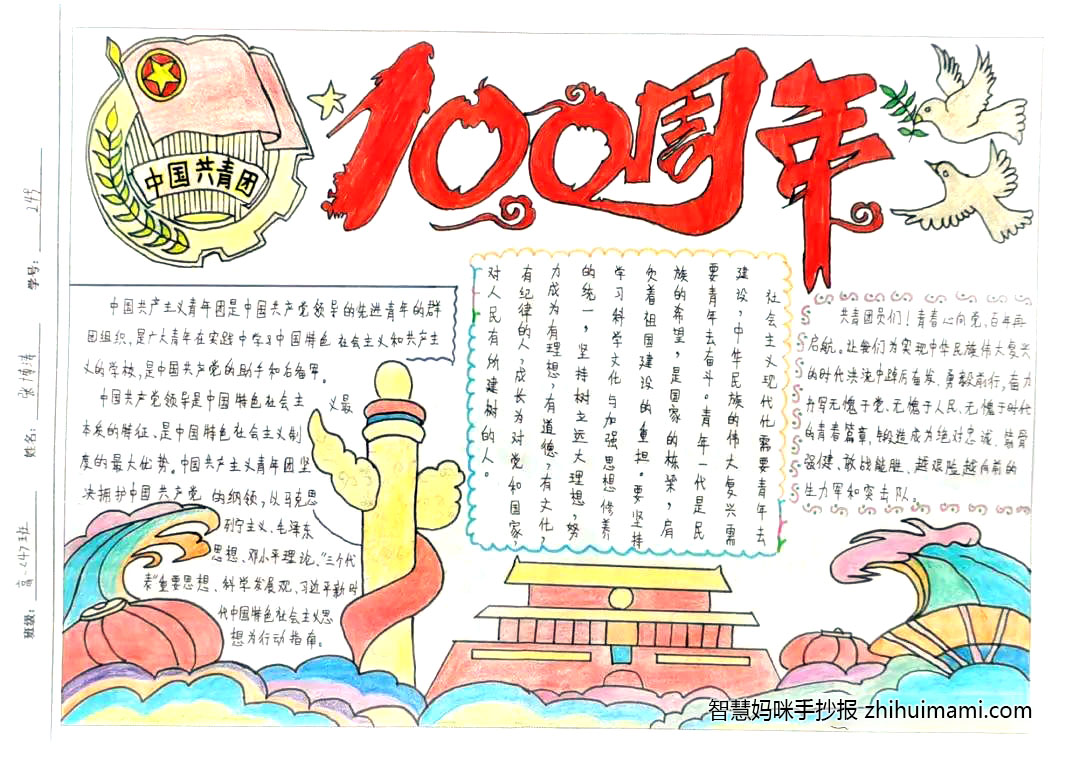 中国共青团
100周年
中国共产主义青年团是中国共产党领导的先进青年的群
团组织,是广大青年在实践中学习中国特色社会主义和共产主
义的学校,是中国共产党的助手和后备军。
中国共产党领导是中国特色社会主义最
本质的特征、是中国特色社会主义制
度的最大优势。中国共产主义青年团坚
决拥护中国共产党的纲领,以马克思
列宁主义、毛泽东
思想、邓小平理论、"三个代
表"重要思想、科学发展观、习近平新时
代中国特色社会主义思
想为行动指南。
社会主义现代化需要青年去
建设,中华民族的伟大复兴需
要青年去奋斗。青年一代是民
族的希望,是国家的栋梁,肩
负着祖国建设的重担。要坚持
学习科学文化与加强思想修养
的统一,坚持树立远大理想,努
力成为有理想,有道德,有文化,
有纪律的人,成长为对党和国家,
对人民有所建树的人。
共青团员们!青春心向党,百年再
启航。让我们为实现中华民族伟大复兴
的时代洪流中踔厉奋发、勇毅前行,奋力
书写无愧于党、无愧于人民、无愧于时代
的青春篇章,锻造成为绝对忠诚、筋骨
强健、敢战能胜、越艰险越向前的
生力军和突击队。
班级: 高一247班
姓名:
学号:
智慧妈咪手抄报 zhihuimami.com